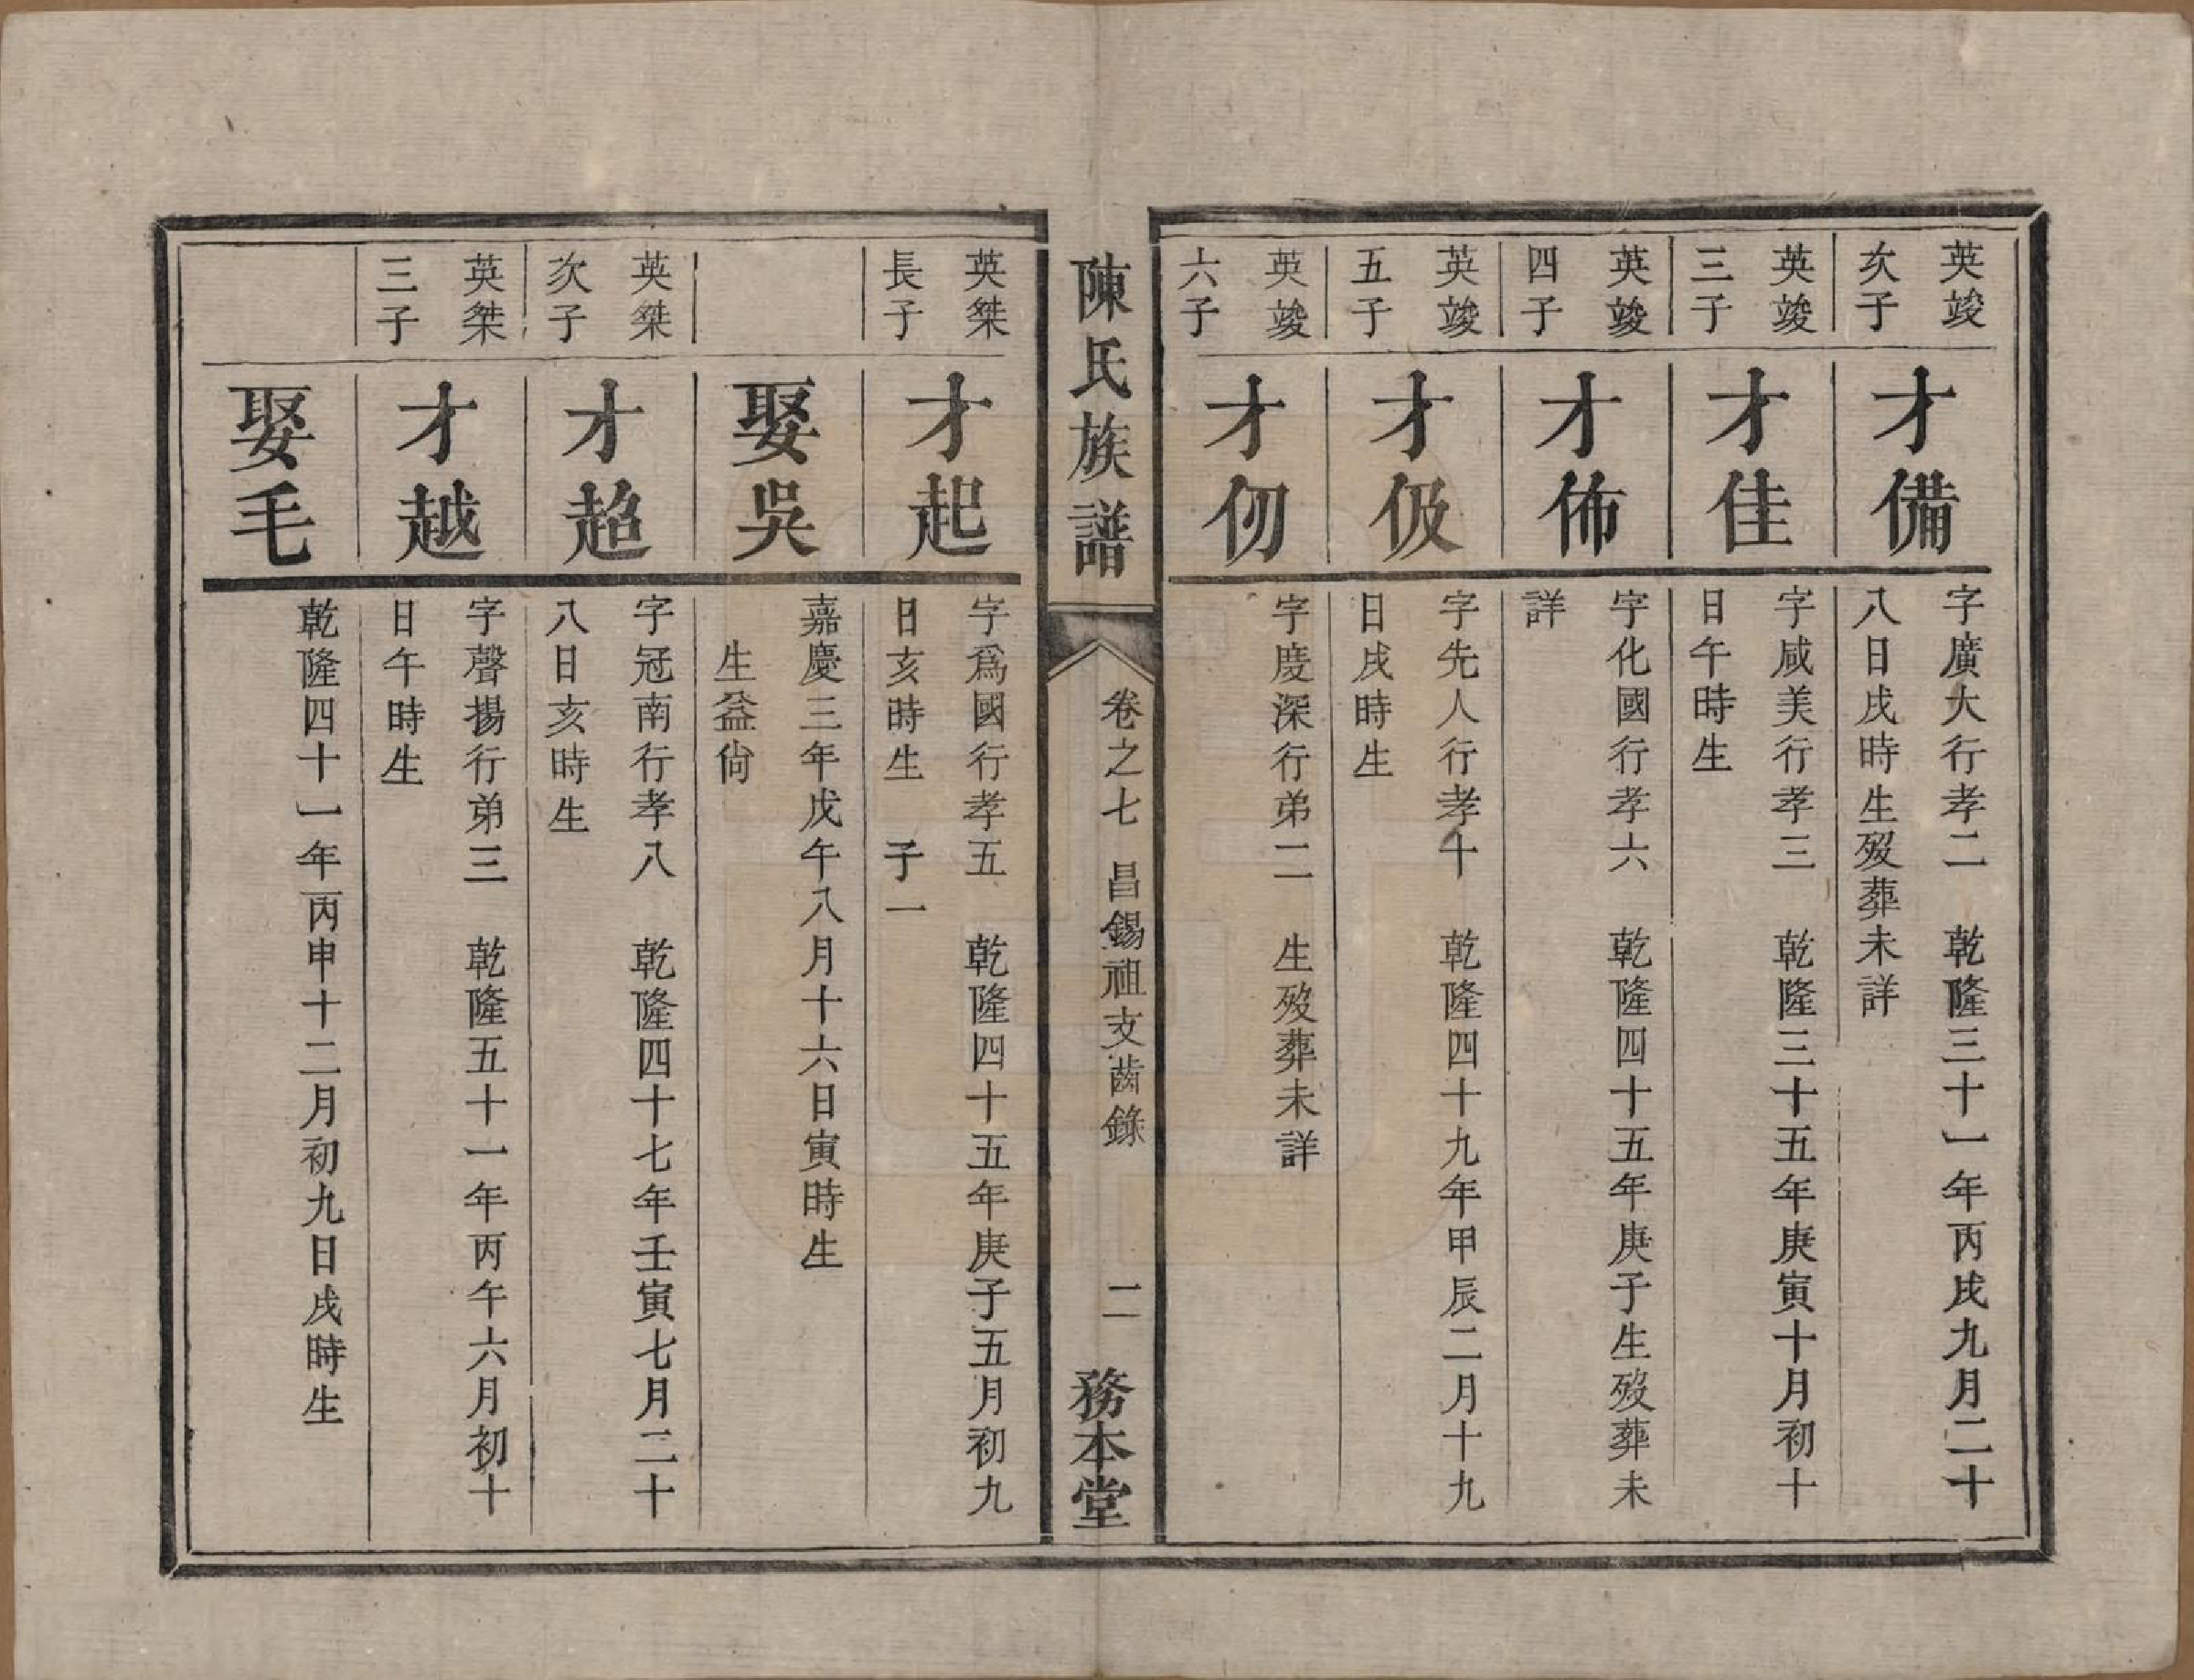 英竣
次子
才備
字廣大行孝二　乾隆三十一年丙戌九月二十
八日戌時生歿葬未詳
英竣
三子
才佳
字咸美行孝三　乾隆三十五年庚寅十月初十
日午時生
英竣
四子
才佈
字化國行孝六　乾隆四十五年庚子生歿葬未
詳
英竣
五子
才伋
字先人行孝十　乾隆四十九年甲辰二月十九
日戌時生
英竣
六子
才仞
字慶深行弟二　生歿葬未詳
陳氏族譜
卷之七　昌錫祖支齒錄
二
務本堂
英桀
長子
才起
字爲國行孝五　乾隆四十五年庚子五月初九
日亥時生　子一
娶吳
嘉慶三年戊午八月十六日寅時生
生益尙
英桀
次子
才超
字冠南行孝八　乾隆四十七年壬寅七月二十
八日亥時生
英桀
三子
才越
字聲揚行弟三　乾隆五十一年丙午六月初十
日午時生
娶毛
乾隆四十一年丙申十二月初九日戌時生